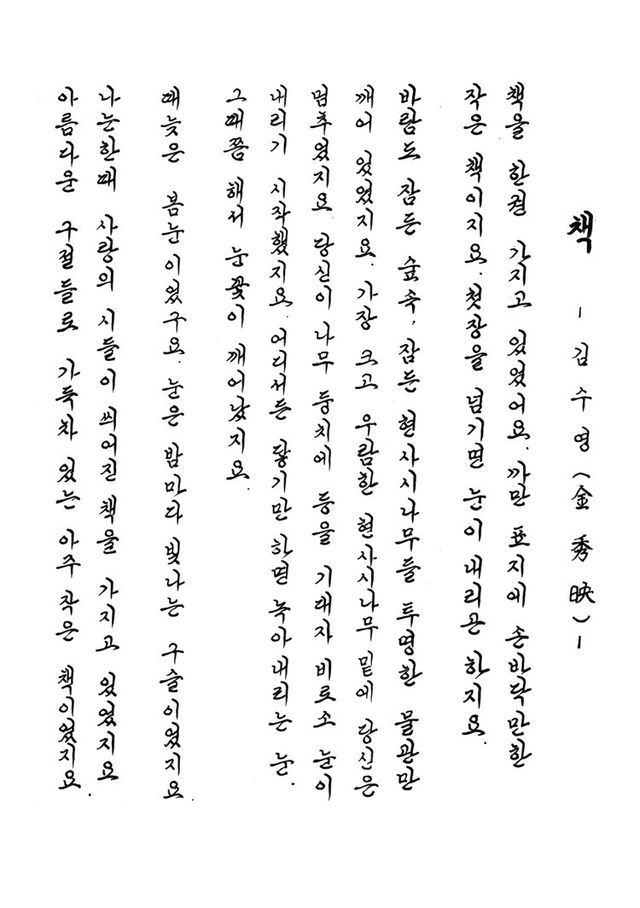 책
- 김수영(金秀映) -
책을 한권 가지고 있었어요. 까만 표지에 손바닥만한
작은 책이지요. 첫장을 넘기면 눈이 내리곤 하지요.
바람도 잠든 숲속, 잠든 현사시나무들 투명한 물관만
깨어 있었지요. 가장 크고 우람한 현사시나무 밑에 당신은
멈추었지요. 당신이 나무 둥치에 등을 기대자 비로소 눈이
내리기 시작했지요. 어디서든 닿기만 하면 녹아내리는 눈.
그때쯤 해서 눈꽃이 깨어났지요.
때늦은 봄눈이었구요. 눈은 밤마다 빛나는 구슬이었지요
나는한때 사랑의 시들이 씌어진 책을 가지고 있었지요
아름다운 구절들로 가득차 있는 아주 작은 책이었지요.